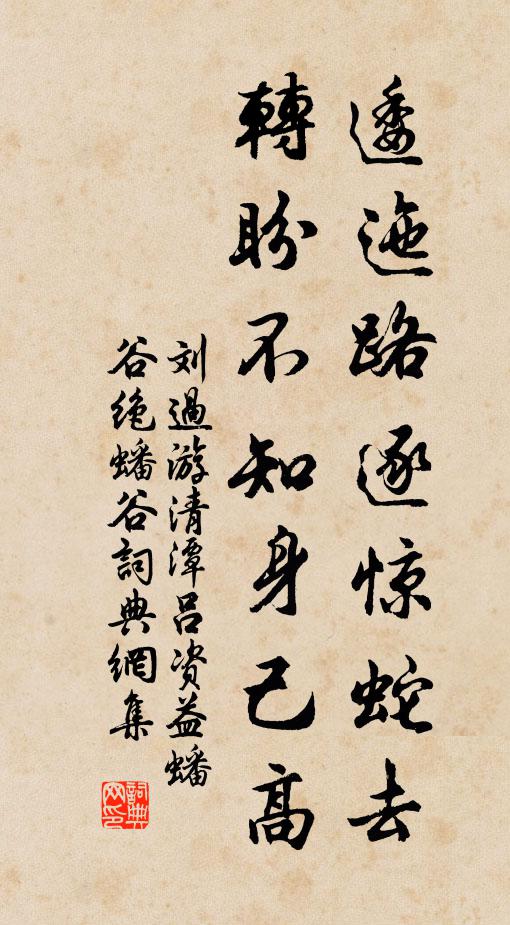 逶迤路逐惊蛇去
轉盼不知身已高
刘過游清潭吕资益蟠
谷绝蟠谷詞典網集
詞典网印